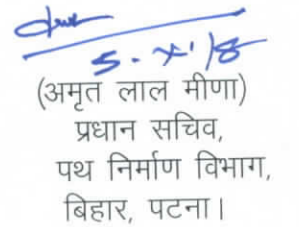 5. XI 18
(अमृत लाल मीणा)
प्रधान सचिव,
पथ निर्माण विभाग,
बिहार, पटना।